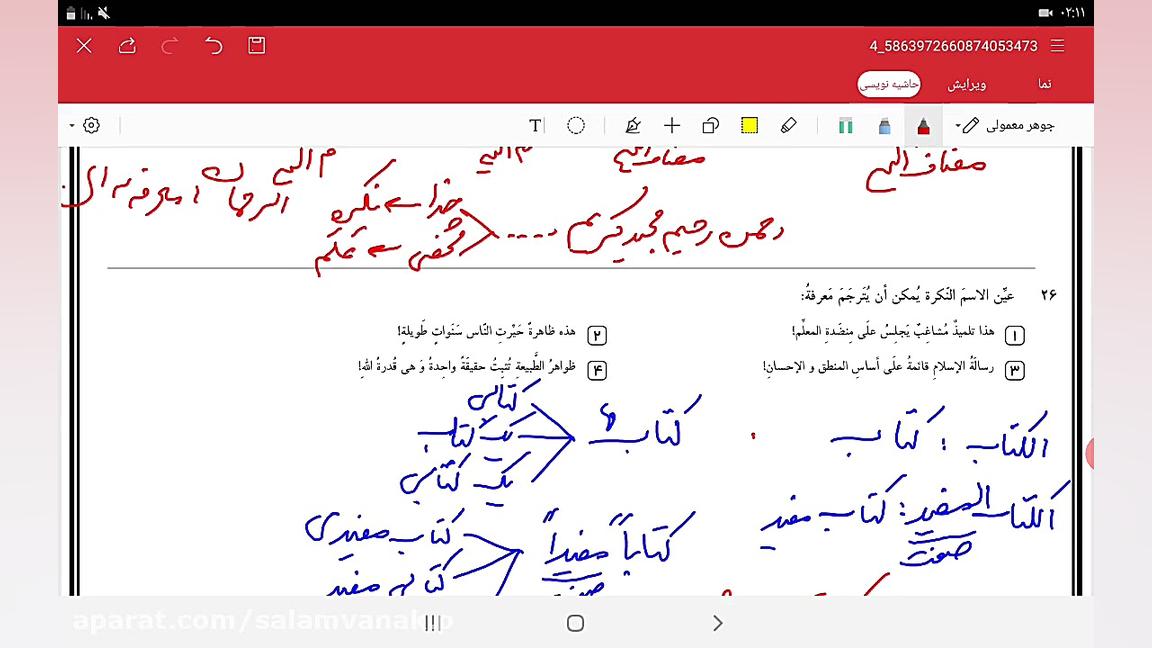 ۰۲:۱۱
4_5863972660874053473
نما ویرایش حاشیه نویسی
جوهر معمولی T
مضاف الیه مضاف الیه م الیه م الیه
رحمن رحیم مجید کریم ....
خدا نکره
شخص علم
۲۶ عیّن الاسمَ النّکرة یُمکن أن یُتَرجَمَ مَعرفةً:
۱ هذا تلمیذٌ مُشاغِبٌ یَجلِسُ علَی مِنضَدةِ المعلِّم!
۲ هذه ظاهرةٌ حَیَّرتِ النّاس سَنَواتٍ طَویلةٍ!
۳ رسالَةُ الإسلامِ قائمةٌ علَی أساسِ المنطق و الإحسانِ!
۴ ظواهرُ الطَّبیعةِ تُثبِتُ حقیقَةً واحِدةً وَ هی قُدرةُ اللهِ!
الکتاب : کتاب
کتاب
کتابی
یک کتاب
یک کتابی
الکتاب المفید : کتاب مفید
صفت
کتاباً مفیداً
صفت
کتاب مفیدی
کتابی مفید
aparat.com/salamvanakp